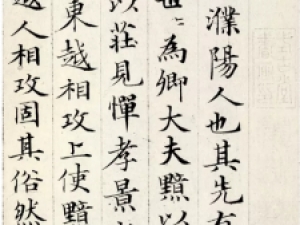 濮陽人也其先有
世〻為卿大夫黯以
以莊見憚孝景
東越相攻上使黯
越人相攻固其俗然